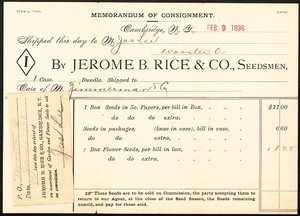 MEMORANDUM OF CONSIGNMENT.
Cambridge, N. Y. FEB 9 1898
Shipped this day to M
Wooster O.
1 By JEROME B. RICE & CO., SEEDSMEN,
1 Case. Bundle. Shipped to
Care of M. Zimmerman & Co
1 Box Seeds in 5c. Papers, per bill in Box, $11.00
do do do extra.
Seeds in packages, (loose in case), bill in case, 6.60
do do do do extra.
1 Box Flower Seeds, per bill in box, 1.85
do do do extra.
These Seeds are to be sold on Commission, the party accepting them
to return to our Agent, at the close of the Seed Season, the Seeds remaining
unsold, and pay for those sold.
P. O.
JEROME B. RICE & CO., CAMBRIDGE, N. Y.